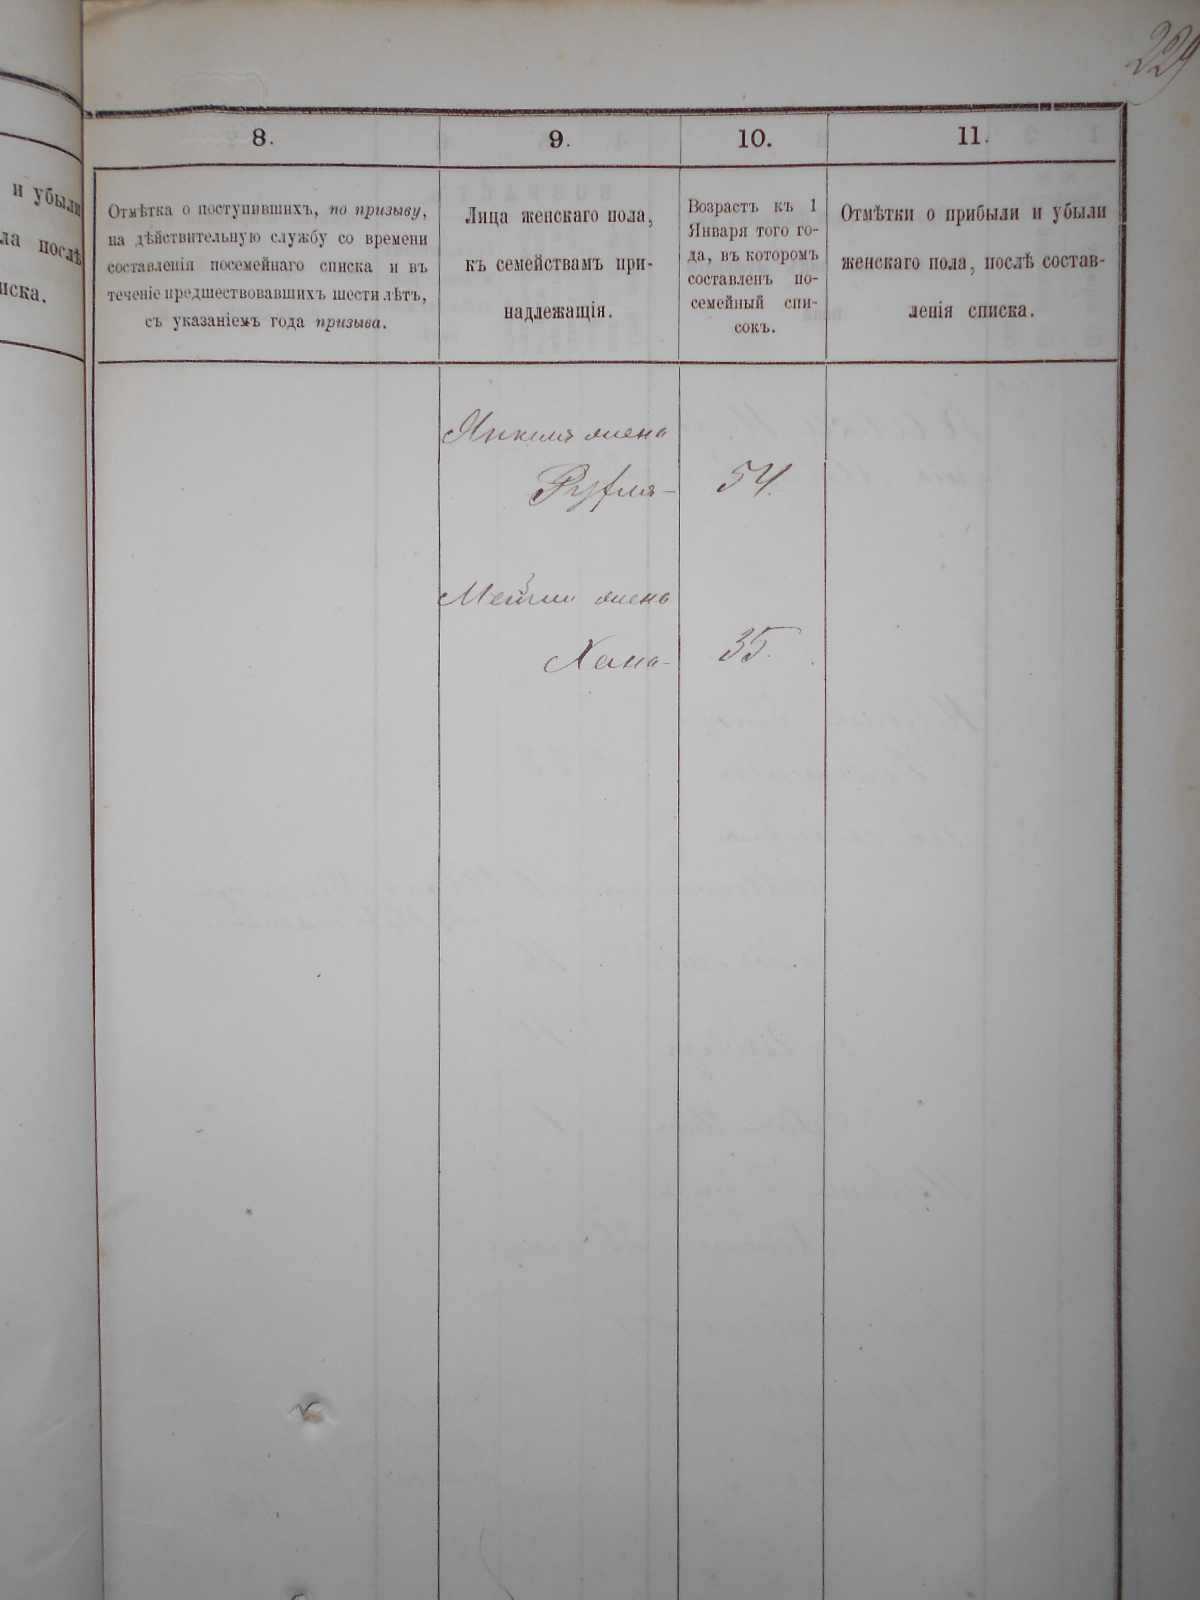 229
и убыли
ла послѣ
иска.
8.
9.
10.
11.
Отмѣтка о поступившихъ, по призыву,
на дѣйствительную службу со времени
составленія посемейнаго списка и въ
теченіе предшествовавшихъ шести лѣтъ,
съ указаніемъ года призыва.
Лица женскаго пола,
къ семействамъ при-
надлежащія.
Возрастъ къ 1
Января того го-
да, въ которомъ
составленъ по-
семейный спи-
сокъ.
Отмѣтки о прибыли и убыли
женскаго пола, послѣ состав-
ленія списка.
Янкеля жена
Рухля 54.
жена
Хана 35.